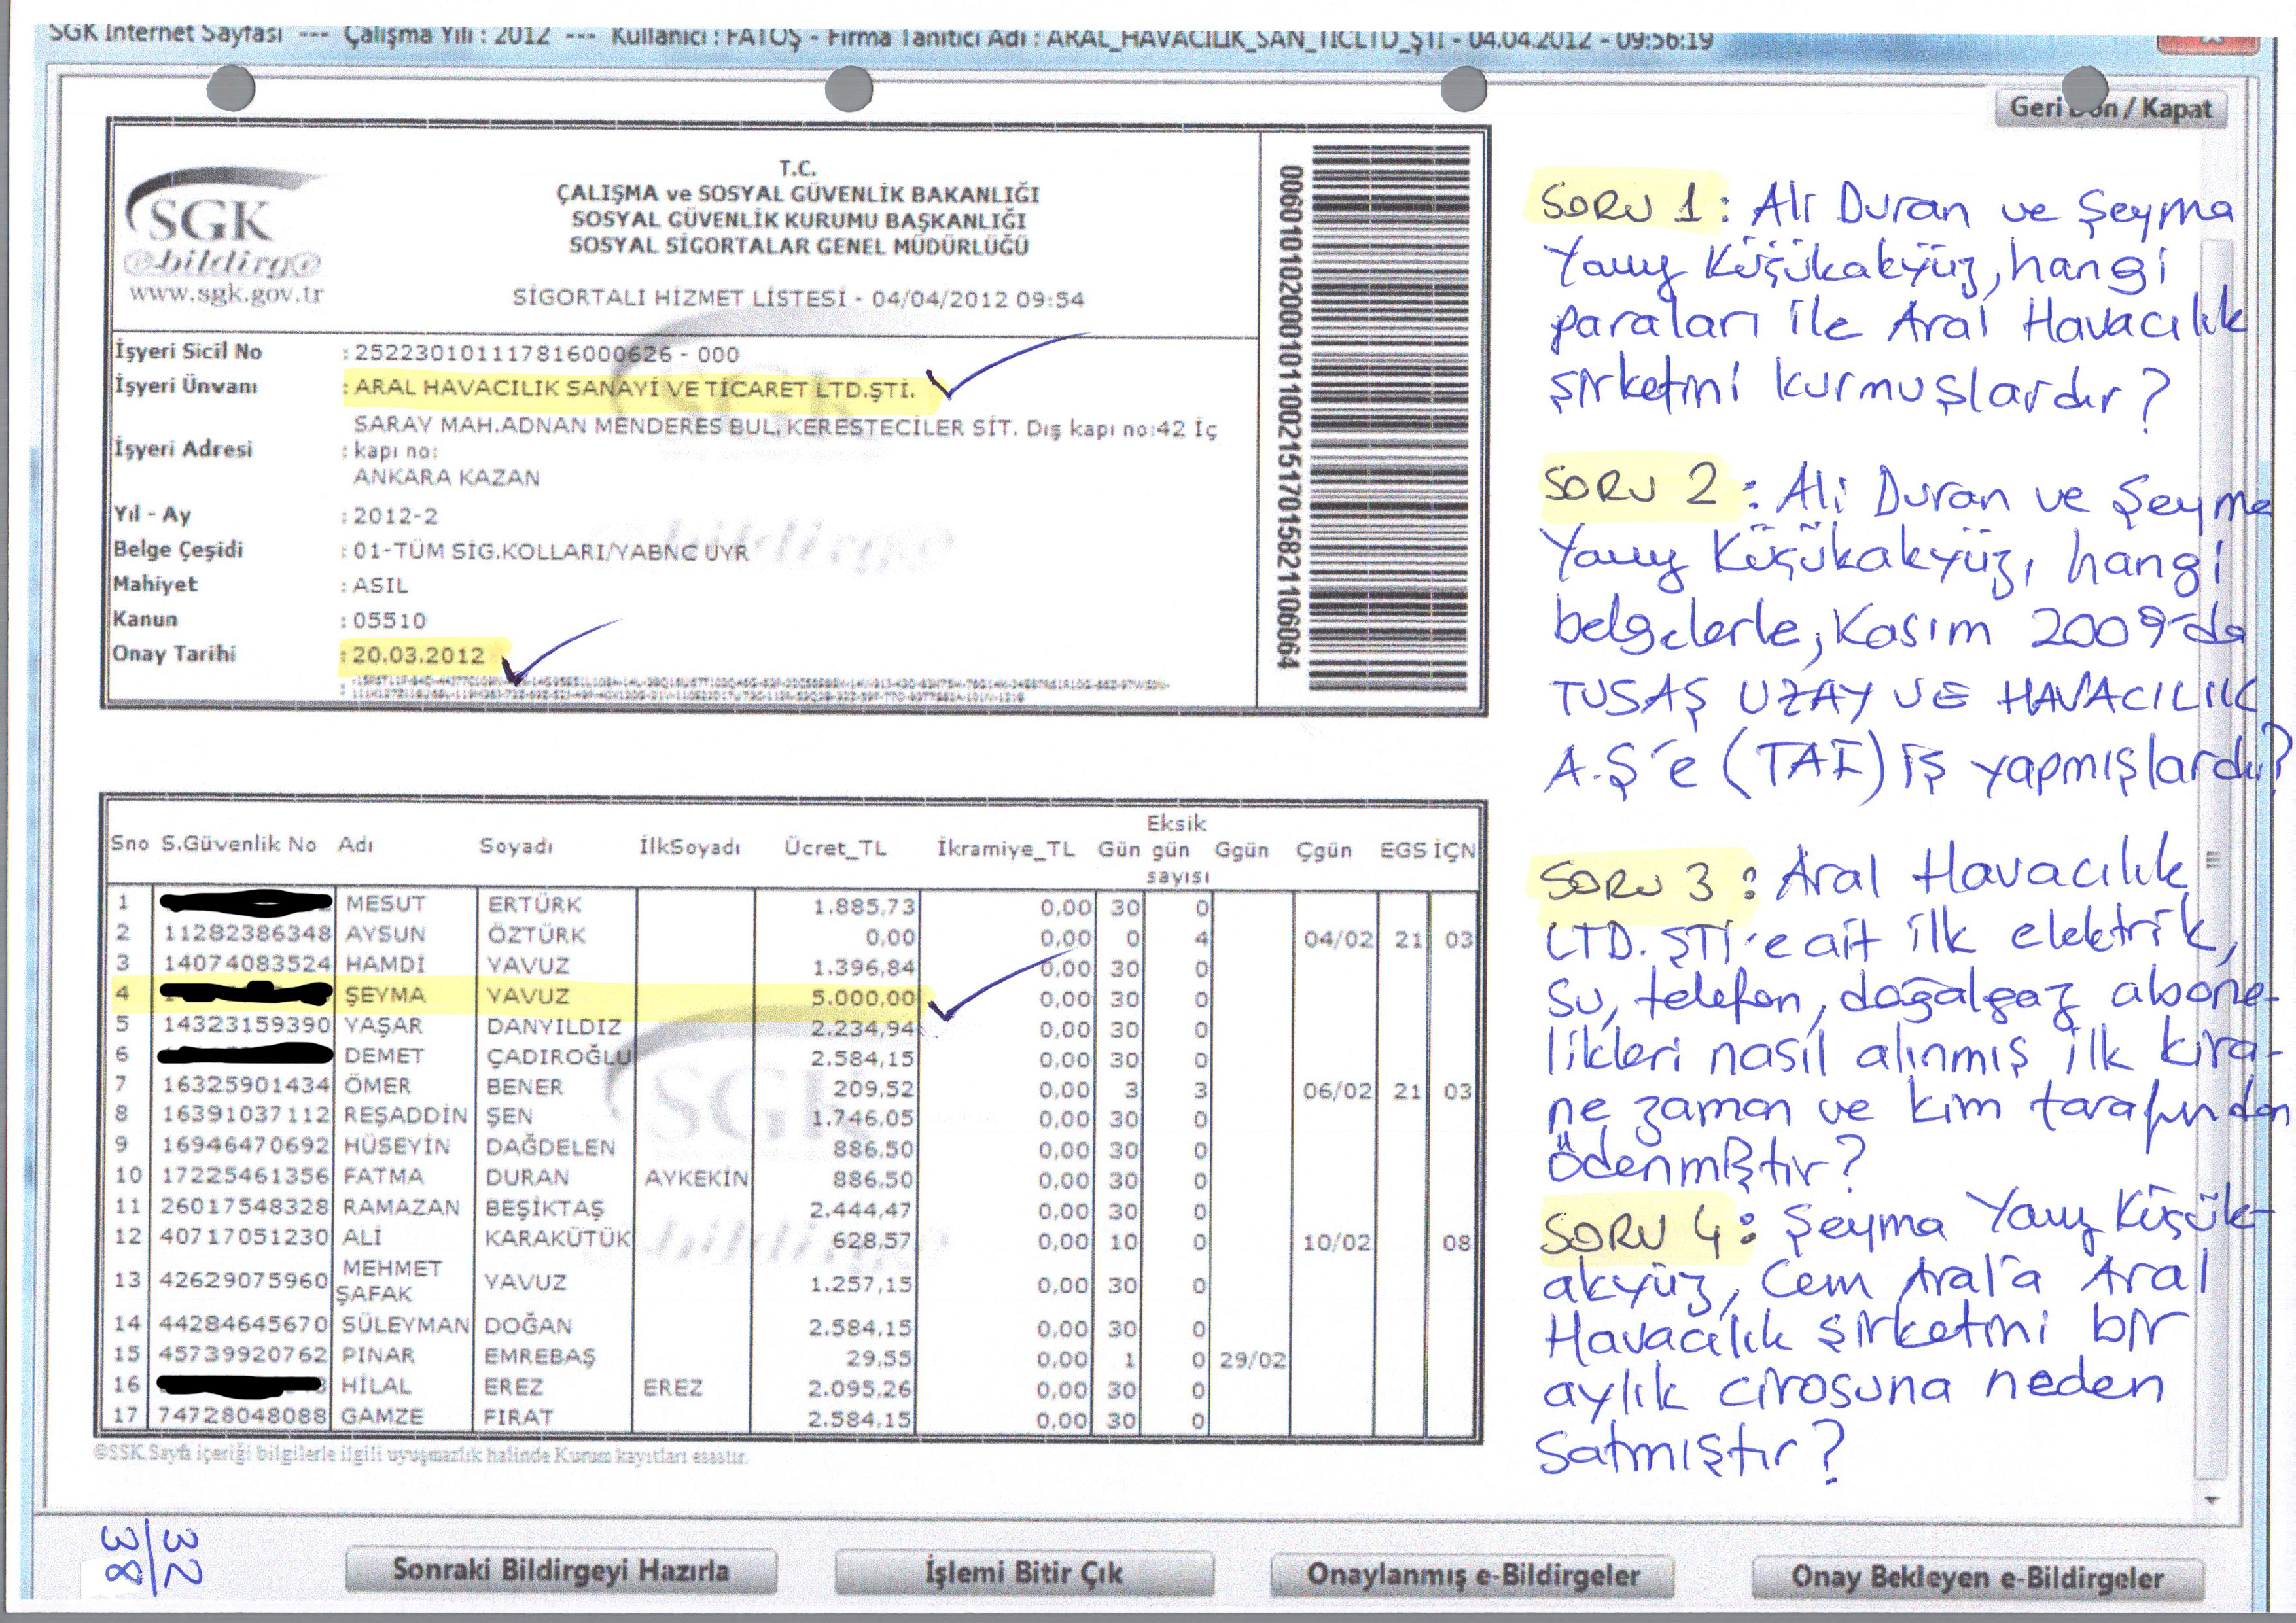 SGK Internet Sayfası --- Çalışma Yılı : 2012 --- Kullanıcı : FATOŞ - Firma Tanıtıcı Adı : ARAL_HAVACILIK_SAN_TICLTD_ŞTİ - 04.04.2012 - 09:56:19
Geri Dön / Kapat
SGK
e-bildirge
www.sgk.gov.tr
T.C.
ÇALIŞMA ve SOSYAL GÜVENLİK BAKANLIĞI
SOSYAL GÜVENLİK KURUMU BAŞKANLIĞI
SOSYAL SİGORTALAR GENEL MÜDÜRLÜĞÜ
SİGORTALI HİZMET LİSTESİ - 04/04/2012 09:54
İşyeri Sicil No : 252230101117816000626 - 000
İşyeri Ünvanı : ARAL HAVACILIK SANAYİ VE TİCARET LTD.ŞTİ.
SARAY MAH.ADNAN MENDERES BUL. KERESTECİLER SİT. Dış kapı no:42 İç
İşyeri Adresi : kapı no:
ANKARA KAZAN
Yıl - Ay : 2012-2
Belge Çeşidi : 01-TÜM SİG.KOLLARI/YABNC UYR
Mahiyet : ASIL
Kanun : 05510
Onay Tarihi : 20.03.2012
Sno S.Güvenlik No Adı Soyadı İlkSoyadı Ücret_TL İkramiye_TL Gün Eksik gün sayısı Ggün Çgün EGS İÇN
1 MESUT ERTÜRK 1.885,73 0,00 30 0
2 11282386348 AYSUN ÖZTÜRK 0,00 0,00 0 4 04/02 21 03
3 14074083524 HAMDİ YAVUZ 1.396,84 0,00 30 0
4 ŞEYMA YAVUZ 5.000,00 0,00 30 0
5 14323159390 YAŞAR DANYILDIZ 2.234,94 0,00 30 0
6 DEMET ÇADIROĞLU 2.584,15 0,00 30 0
7 16325901434 ÖMER BENER 209,52 0,00 3 3 06/02 21 03
8 16391037112 REŞADDİN ŞEN 1.746,05 0,00 30 0
9 16946470692 HÜSEYİN DAĞDELEN 886,50 0,00 30 0
10 17225461356 FATMA DURAN AYKEKİN 886,50 0,00 30 0
11 26017548328 RAMAZAN BEŞİKTAŞ 2.444,47 0,00 30 0
12 40717051230 ALİ KARAKÜTÜK 628,57 0,00 10 0 10/02 08
13 42629075960 MEHMET ŞAFAK YAVUZ 1.257,15 0,00 30 0
14 44284645670 SÜLEYMAN DOĞAN 2.584,15 0,00 30 0
15 45739920762 PINAR EMREBAŞ 29,55 0,00 1 0 29/02
16 HİLAL EREZ EREZ 2.095,26 0,00 30 0
17 74728048088 GAMZE FIRAT 2.584,15 0,00 30 0
©SSK.Sayfa içeriği bilgilerle ilgili uyuşmazlık halinde Kurum kayıtları esastır.
SORU 1 : Ali Duran ve Şeyma
Yavuz Küçükakyüz, hangi
paraları ile Aral Havacılık
şirketini kurmuşlardır?
SORU 2 : Ali Duran ve Şeyma
Yavuz Küçükakyüz, hangi
belgelerle, Kasım 2009'da
TUSAŞ UZAY VE HAVACILIK
A.Ş'e (TAI) iş yapmışlardır?
SORU 3 : Aral Havacılık
LTD. ŞTİ'e ait ilk elektrik,
su, telefon, doğalgaz abone-
likleri nasıl alınmış ilk kira-
ne zaman ve kim tarafından
ödenmiştir?
SORU 4 : Şeyma Yavuz Küçük-
akyüz, Cem Aral'a Aral
Havacılık şirketini bir
aylık cirosuna neden
satmıştır?
32/38
Sonraki Bildirgeyi Hazırla
İşlemi Bitir Çık
Onaylanmış e-Bildirgeler
Onay Bekleyen e-Bildirgeler
00601010200010110021517015821106064